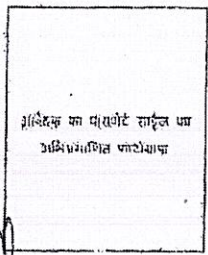 आवेदक का पासपोर्ट साईज का
अभिप्रमाणित फोटोग्राफ